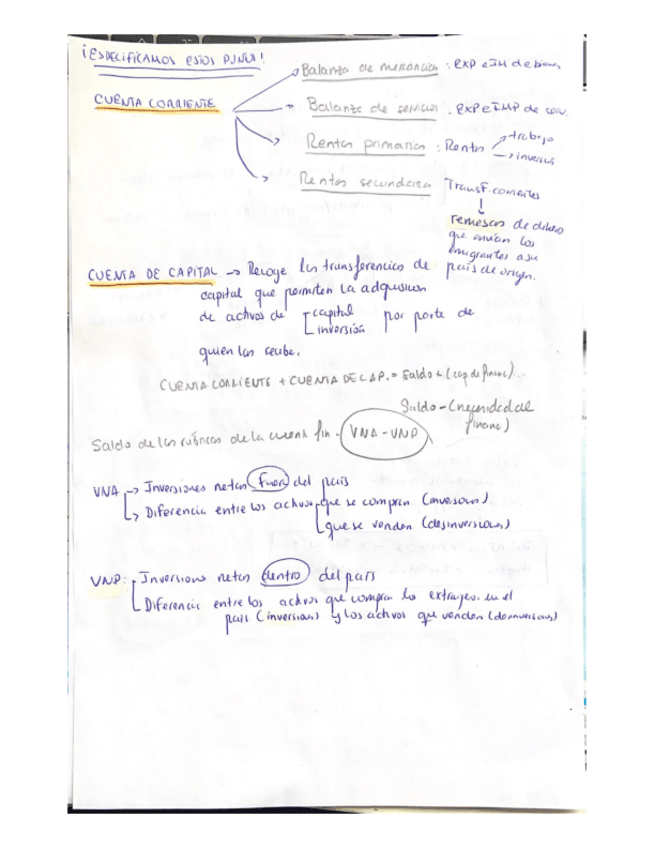 ¡ESPECIFICAMOS ESTOS PUNTOS!
Balanza de mercancias : EXP e IM de bienes
CUENTA CORRIENTE
Balanza de servicios . EXP e IMP de serv.
Rentas primarias : Rentas → trabajo
→ inversion
Rentas secundarias Transf. corrientes
↓
remesas de dinero
que envían los
emigrantes a su
país de origen.
CUENTA DE CAPITAL → Recoge las transferencias de
capital que permiten la adquision
de activos de capital por parte de
inversión
quien las recibe.
CUENTA CORRIENTE + CUENTA DE CAP. = Saldo + (cap. de financ).
Saldo - (necesidad de
financ)
Saldo de las rúbricas de la cuenta fin. VNA - VNP
VNA → Inversiones netas fuera del país
→ Diferencia entre los activos que se compran (inversiones)
que se venden (desinversiones)
VNP: Inversiones netas dentro del país
Diferencia entre los activos que compran los extranjeros en el
país (inversiones) y los activos que venden (desinversiones)